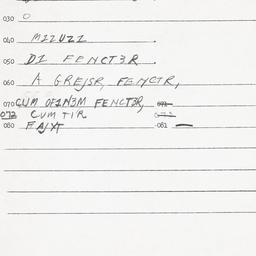 030 O
040 MIZUZZ .
050 DI FENCT3R .
060 A GREJSR, FENCTR,
070 CUM OF1N3M FENCT3R, 071
072 CUM TIR 073
080 FAJXT 081 —